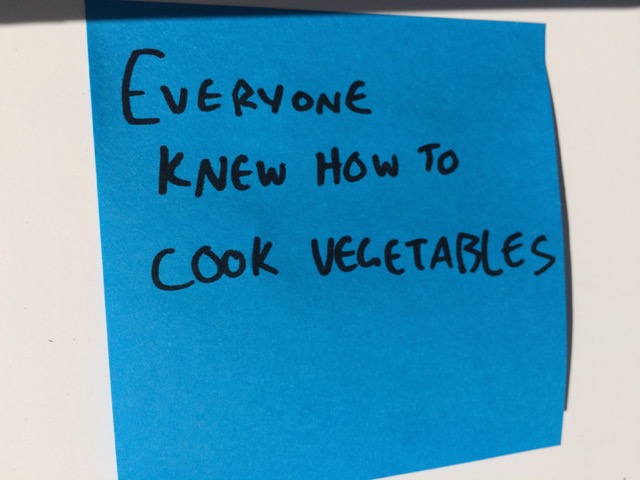 EVERYONE
KNEW HOW TO
COOK VEGETABLES